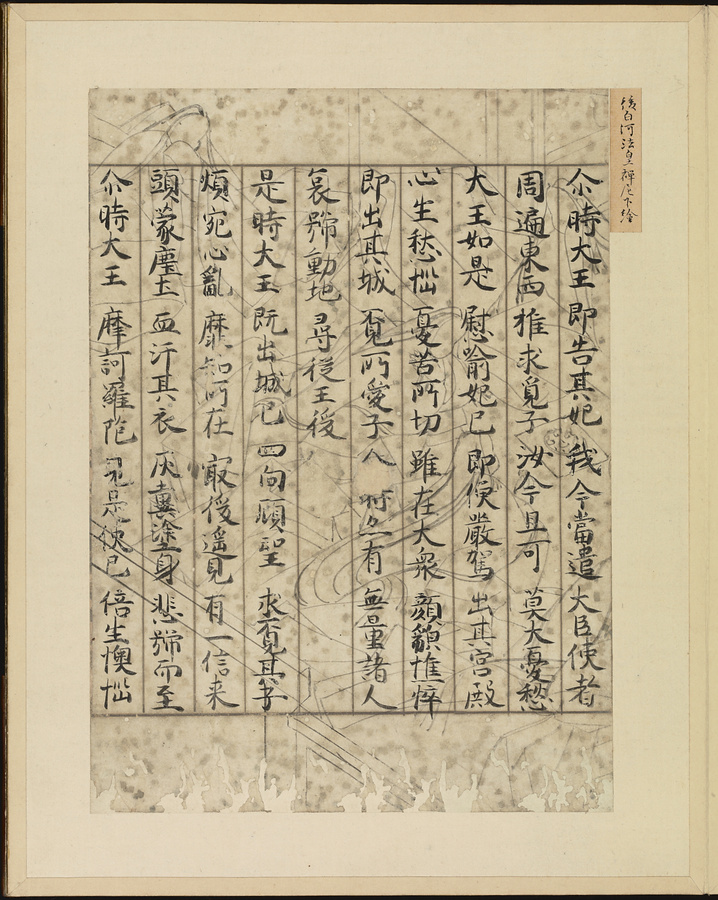 後白河法皇禅尼下絵
尒時大王 即告其妃 我今當遣 大臣使者
周遍東西 推求覓子 汝今且可 莫大憂愁
大王如是 慰喻妃已 即便嚴駕 出其宮殿
心生愁惱 憂苦所切 雖在大衆 顏貌憔悴
即出其城 覓所愛子 有 無量諸人
哀號動地 尋從王後
是時大王 既出城已 四向顧望 求覓其子
煩宛心亂 靡知所在 最後遥見 有一信来
頭蒙塵土 血汙其衣 灰糞塗身 悲號而至
尒時大王 摩訶羅陁 見是使已 倍生懊惱